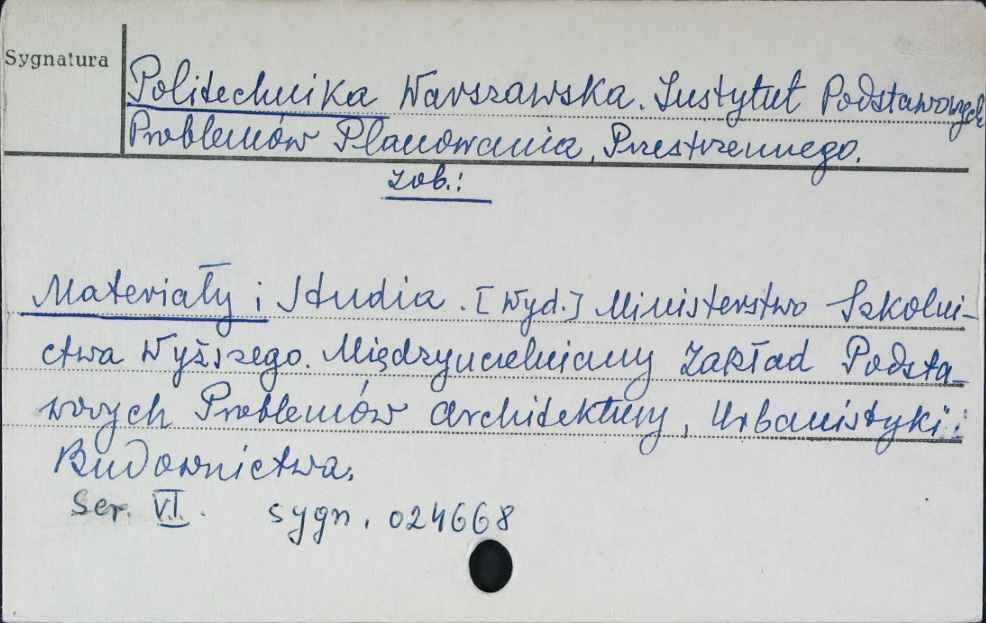 Sygnatura
Politechnika Warszawska. Instytut Podstawowych
Problemów Planowania Przestrzennego.
zob.:
Materiały i Studia. [Wyd.] Ministerstwo Szkolni-
ctwa Wyższego. Międzyuczelniany Zakład Podsta-
wowych Problemów Architektury, Urbanistyki i
Budownictwa.
Ser. VI. sygn. 024668